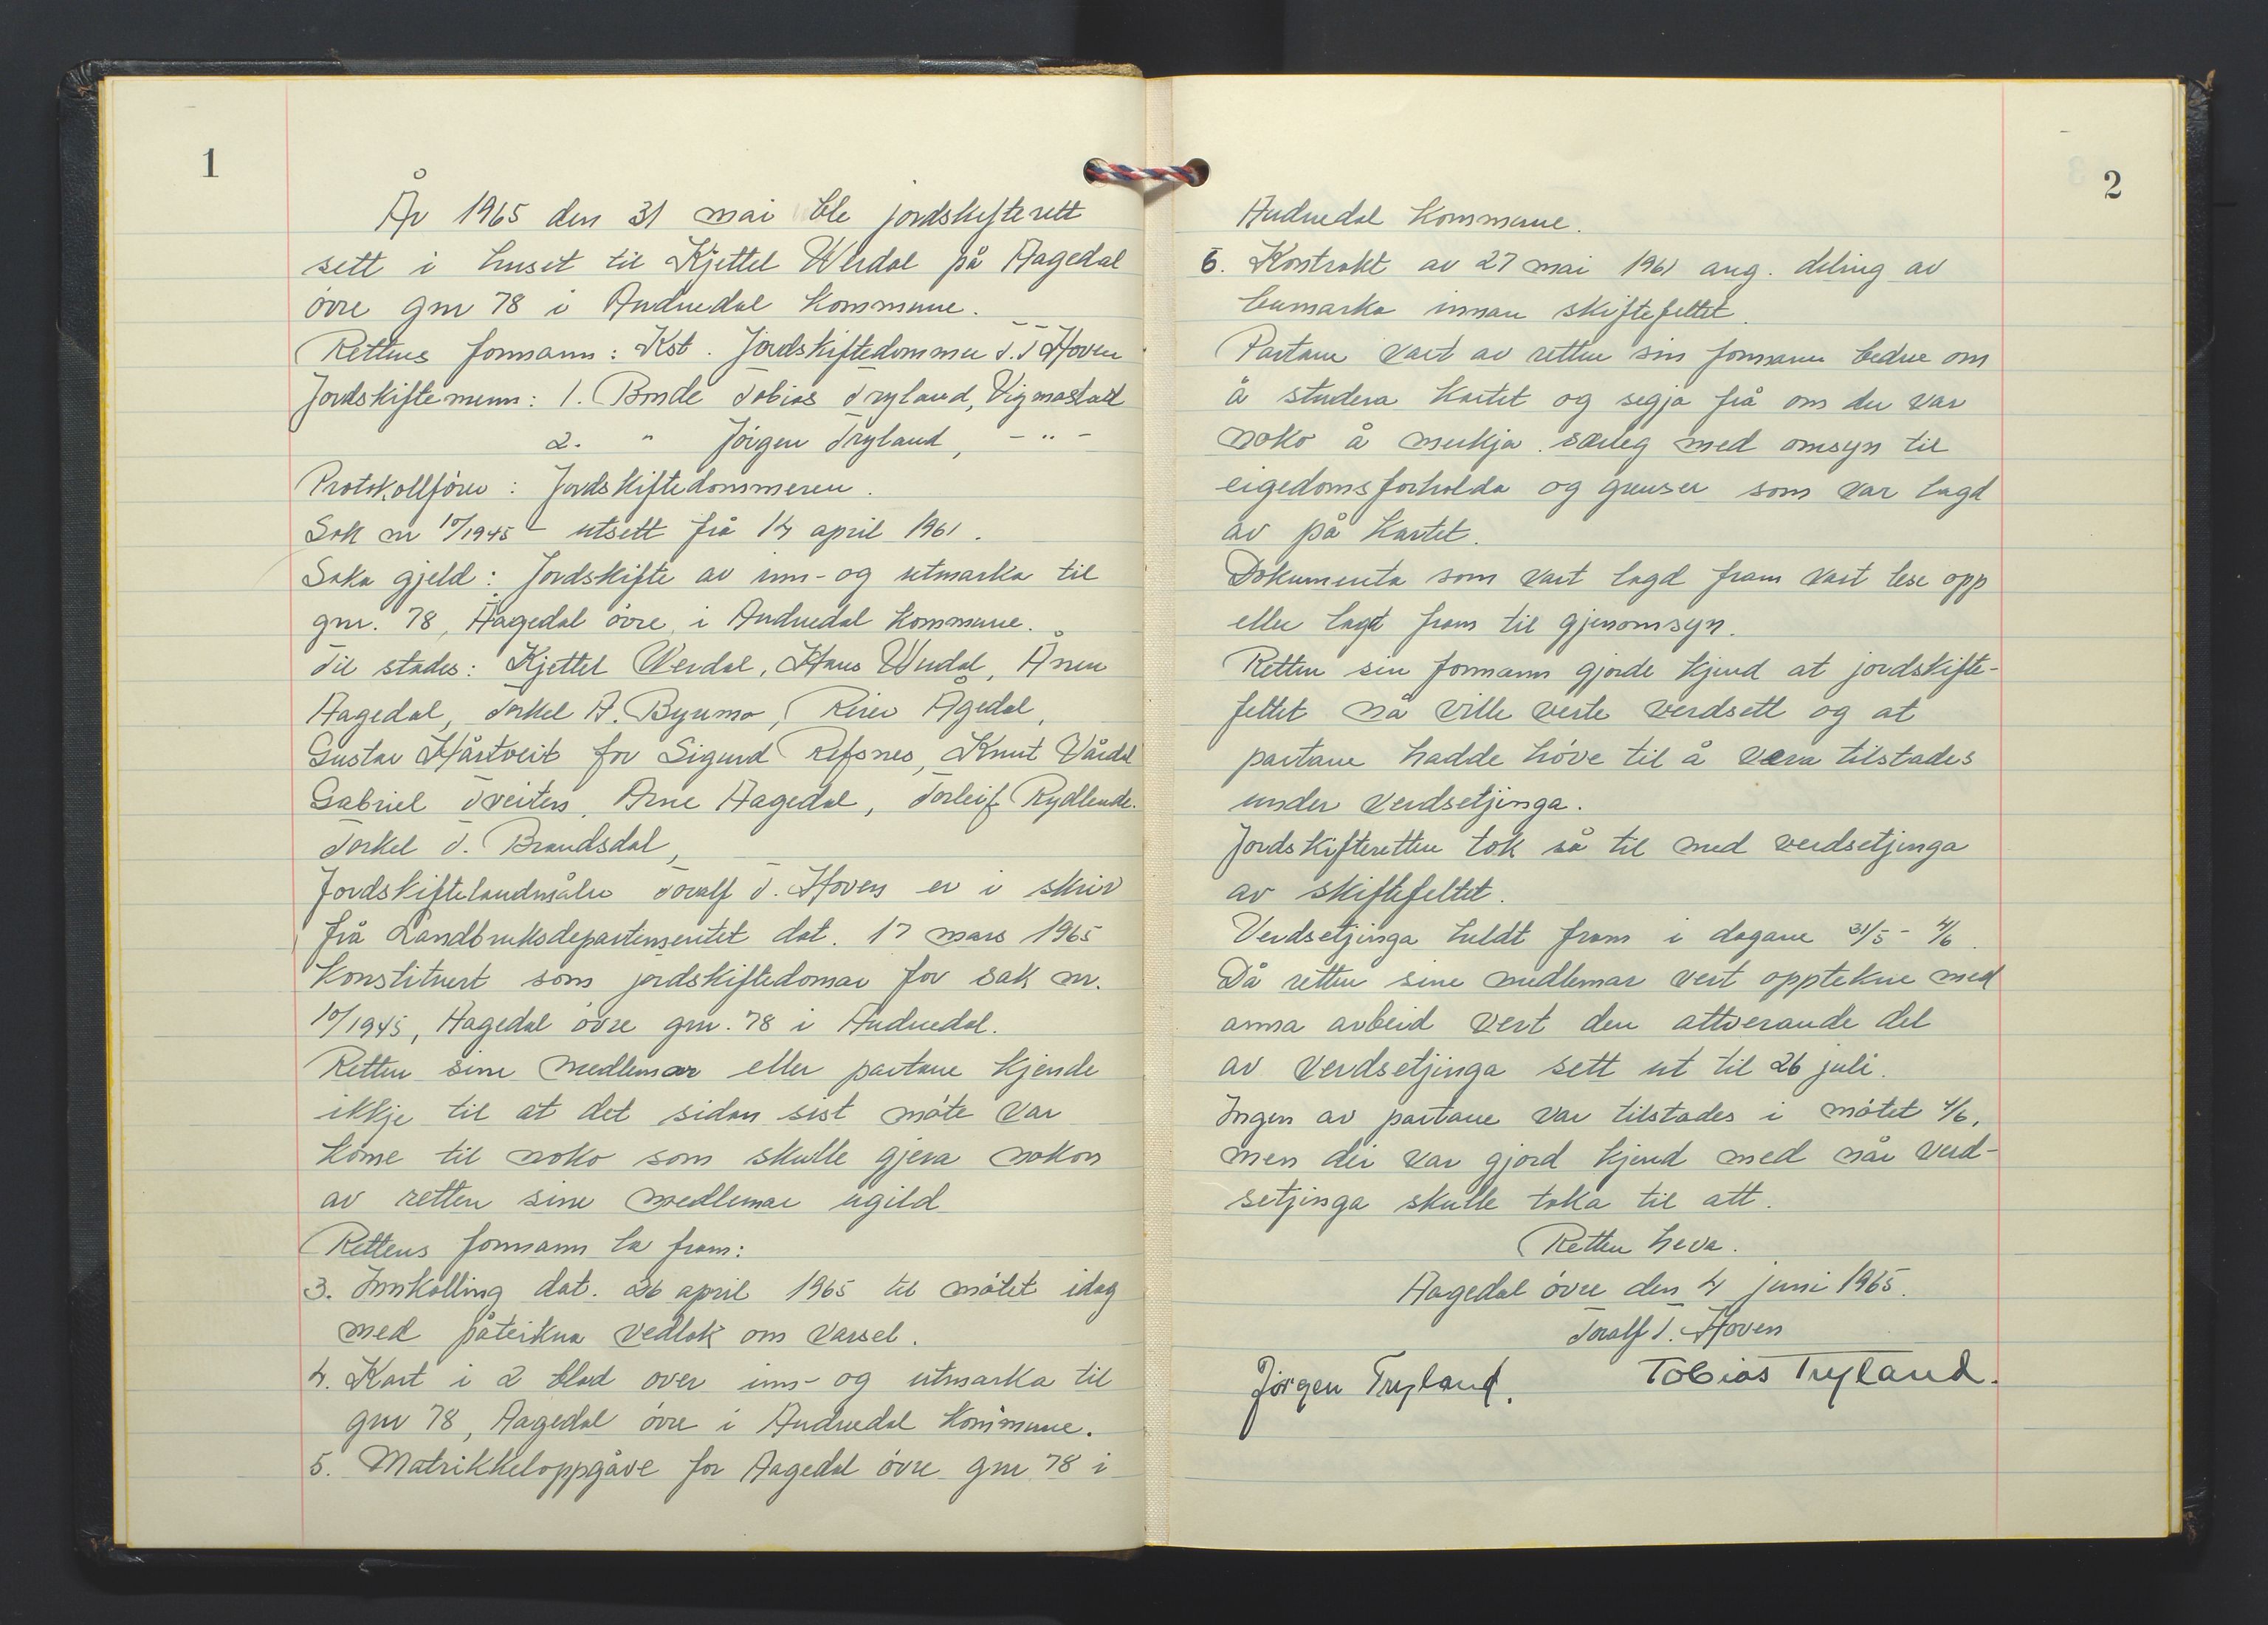 1
År 1965 den 31 mai ble jordskifterett
sett i huset til Kjettel Werdal på Aagedal
övre gnr 78 i Audnedal kommune.
Rettens formann: Kst. Jordskiftedommer T. T Hoven
Jordskiftemenn: 1. Bonde Tobias Tryland, Vigmostad
2. " Jörgen Tryland, - " -
Protokollförer: Jordskiftedommeren.
Sak nr 10/1945 - utsett frå 14 april 1961.
Saka gjeld: Jordskifte av inn- og utmarka til
gnr. 78, Aagedal övre, i Audnedal kommune.
Til stades: Kjettel Werdal, Hans Werdal, Ånen
Aagedal, Torkel A. Byremo, Reier Ågedal,
Gustav Hårtveit for Sigurd Refsnes, Knut Vårdal
Gabriel Tveiten, Arne Aagedal, Torleif Rydlende.
Torkel T. Brandsdal,
Jordskiftelandmåler Toralf T. Hoven er i skriv
frå Landbruksdepartementet dat. 17 mars 1965
konstituert som jordskiftedomar for sak nr.
10/1945, Aagedal övre gnr. 78 i Audnedal.
Retten sine medlemar eller partane kjende
ikkje til at det sidan sist möte var
kome til noko som skulle gjera nokon
av retten sine medlemar ugild
Rettens formann la fram:
3. Innkalling dat. 26 april 1965 til mötet idag
med påteikna vedtak om varsel.
4. Kart i 2 blad over inn- og utmarka til
gnr 78, Aagedal övre i Audnedal kommune.
5. Matrikkeloppgåve for Aagedal övre gnr 78 i
2
Audnedal kommune.
6. Kontrakt av 27 mai 1961 ang. deling av
bumarka innan skiftefeltet.
Partane vart av retten sin formann bedne om
å studera kartet og segja frå om der var
noko å merkja særleg med omsyn til
eigedomsforholda og grenser som var lagd
av på kartet.
Dokumenta som vart lagd fram vart lese opp
eller lagt fram til gjenomsyn.
Retten sin formann gjorde kjend at jordskifte-
feltet nå ville verte verdsett og at
partane hadde höve til å vera tilstades
under verdsetjinga.
Jordskifteretten tok så til med verdsetjinga
av skiftefeltet.
Verdsetjinga heldt fram i dagane 31/5 - 4/6.
Då retten sine medlemar vert opptekne med
anna arbeid vert den attverande del
av verdsetjinga sett ut til 26 juli.
Ingen av partane var tilstades i mötet 4/6,
men dei var gjord kjend med når verd-
setjinga skulle taka til att.
Retten heva.
Aagedal övre den 4 juni 1965.
Toralf T. Hoven
Jörgen Tryland. Tobias Tryland.